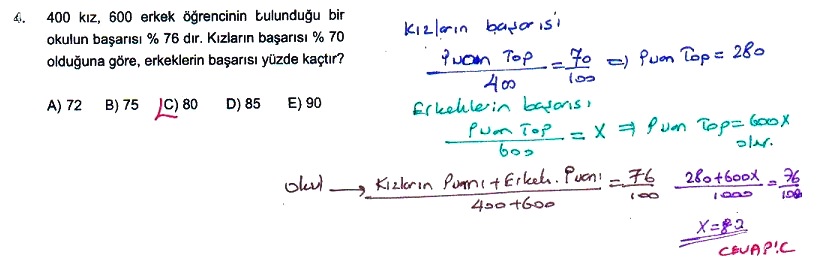 4. 400 kız, 600 erkek öğrencinin bulunduğu bir
okulun başarısı % 76 dır. Kızların başarısı % 70
olduğuna göre, erkeklerin başarısı yüzde kaçtır?
A) 72 B) 75 C) 80 D) 85 E) 90
Kızların başarısı
Puan Top / 400 = 70 / 100 => Puan Top = 280
Erkeklerin başarısı
Puan Top / 600 = X => Puan Top = 600X
olur.
okul → Kızların Puanı + Erkek. Puanı / 400+600 = 76 / 100 280+600X / 1000 = 76 / 100
X=80
CEVAP:C